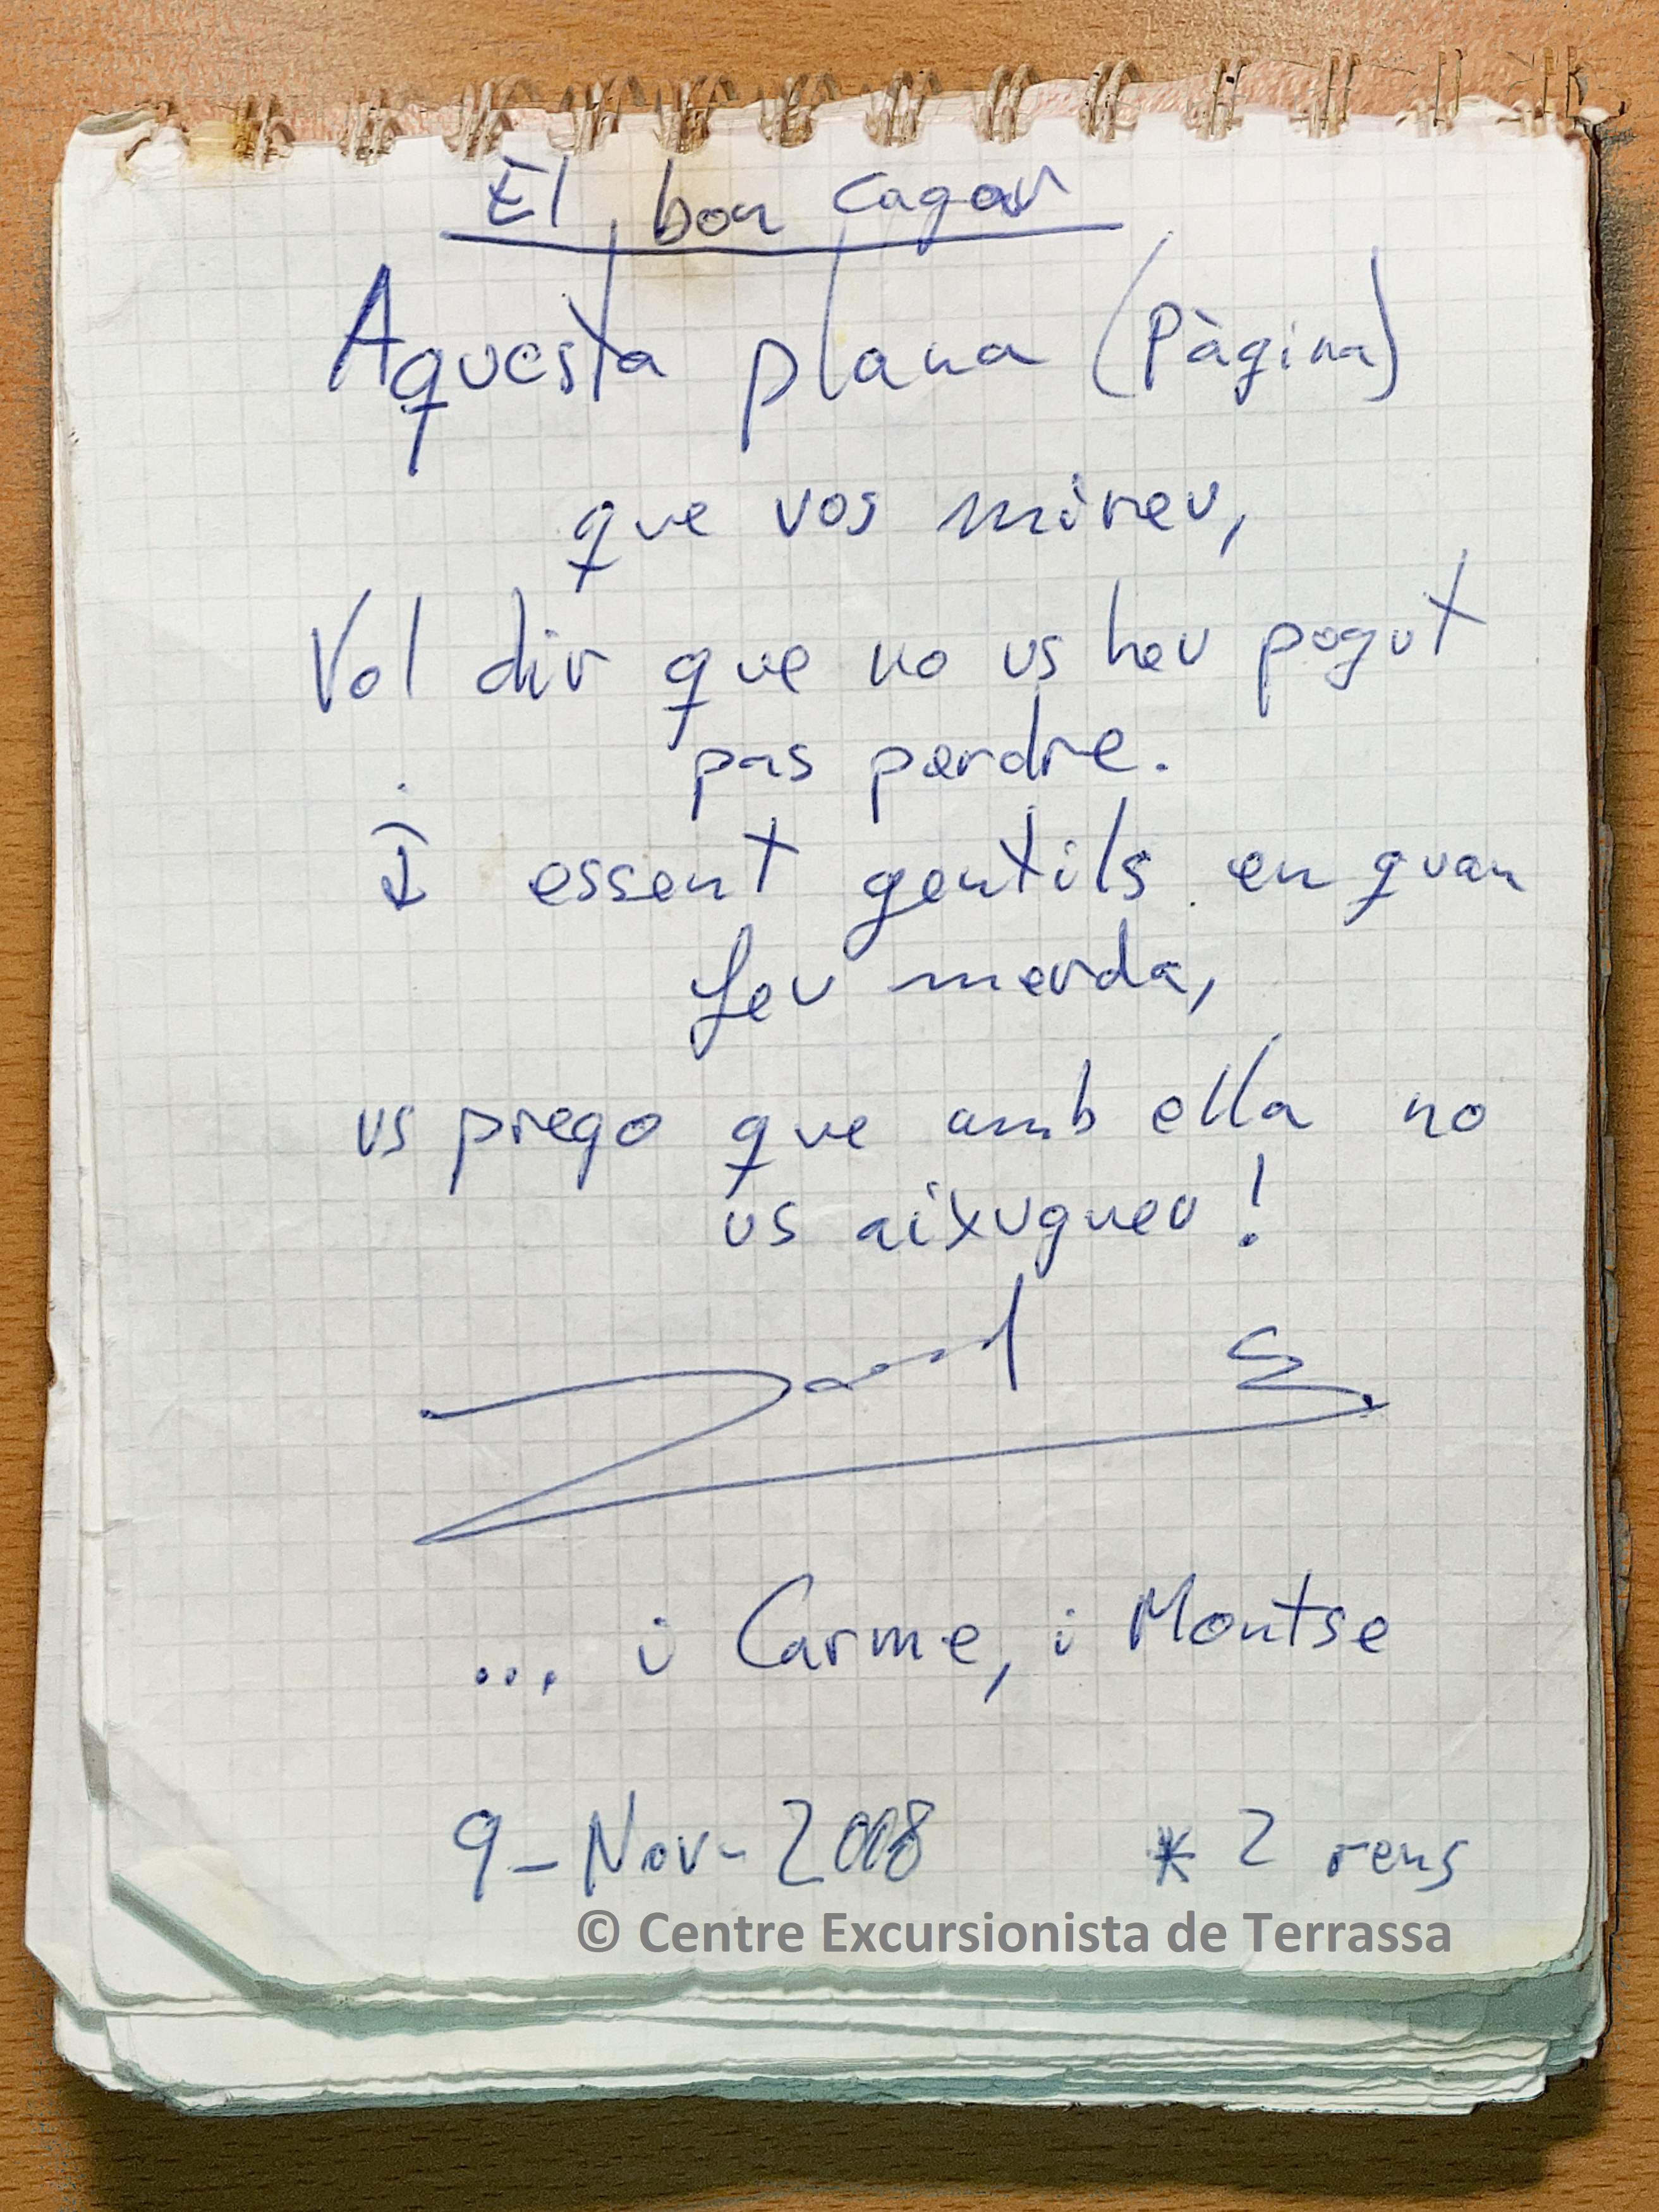 El bon cagar
Aquesta plana (Pàgina)
que vos mireu,
Vol dir que no us heu pogut
pas perdre.
I essent gentils en quan
feu merda,
us prego que amb ella no
us aixugueu!
... i Carme, i Montse
9-Nov-2008 * 2 rens
© Centre Excursionista de Terrassa